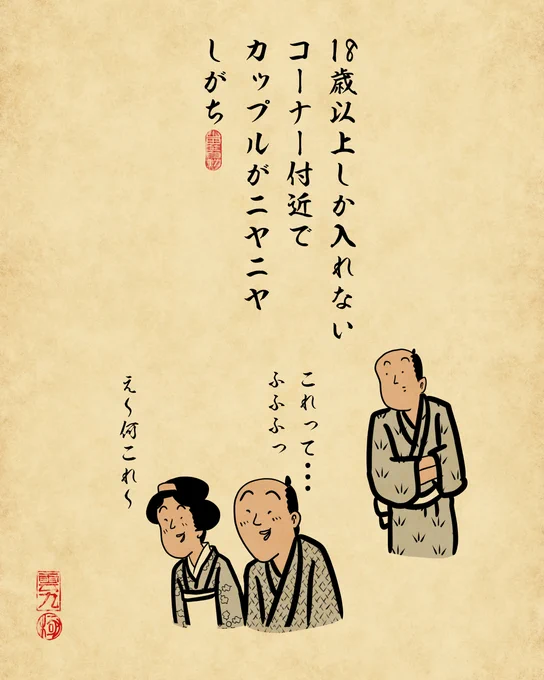 18歳以上しか入れない
コーナー付近で
カップルがニヤニヤ
しがち
これって・・・
ふふふっ
え〜何これ〜